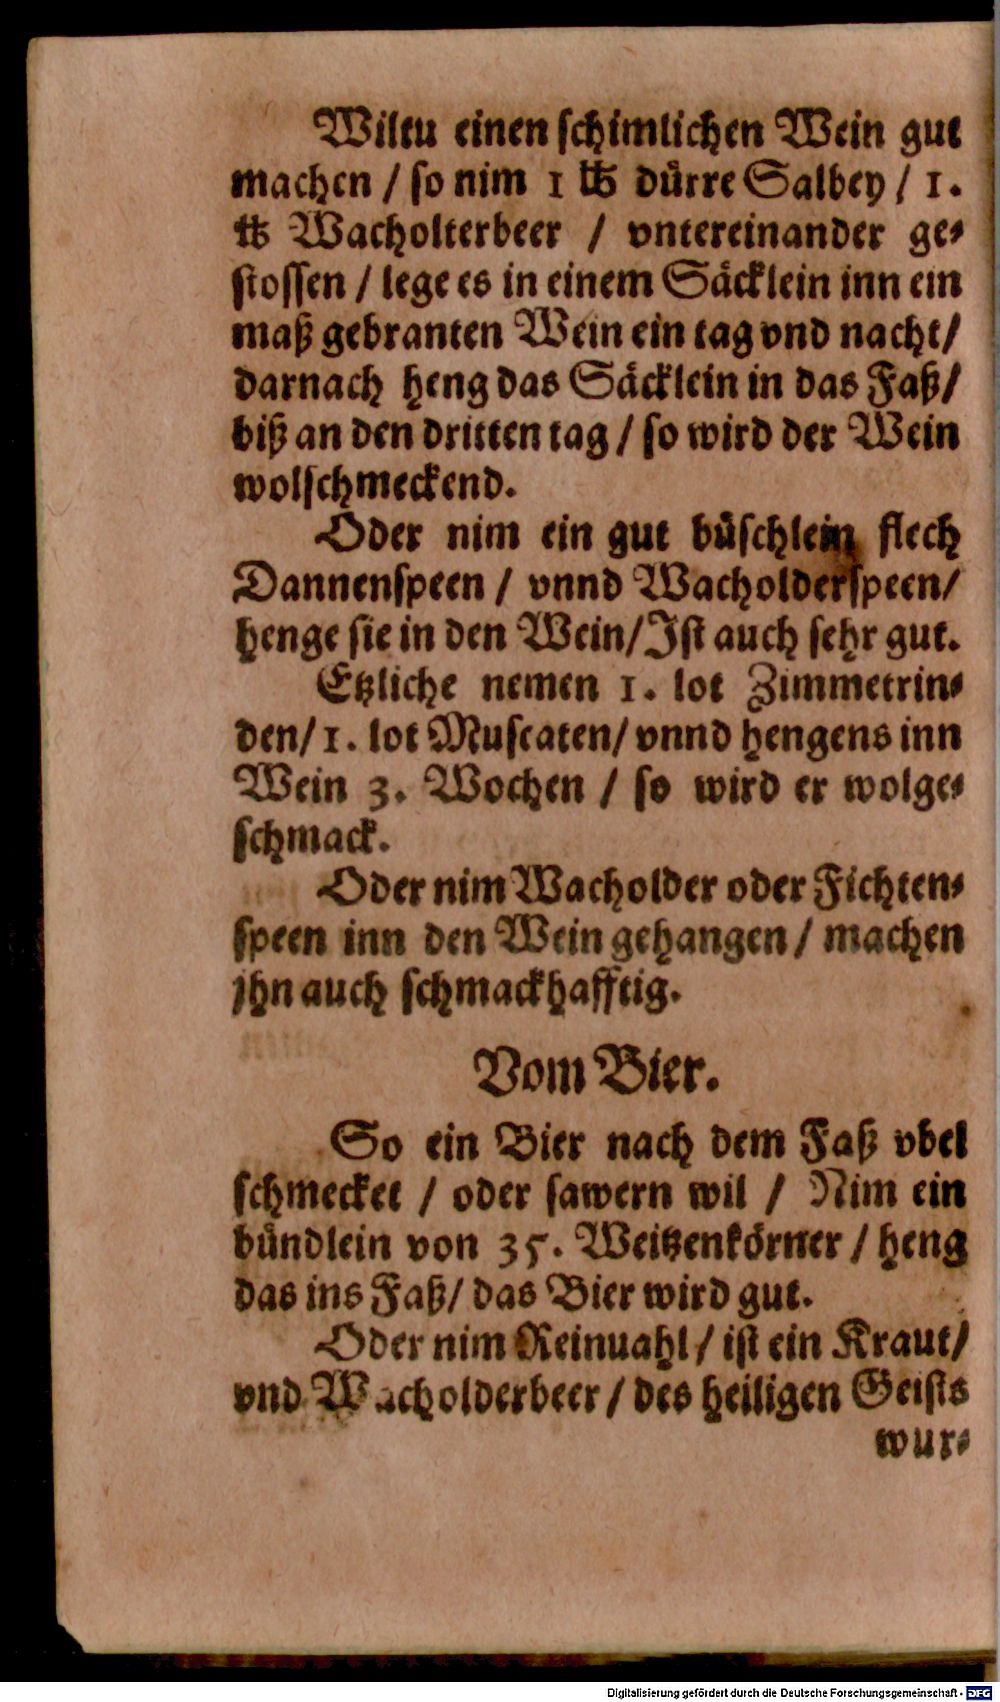 Wiltu einen schimlichen Wein gut
machen / so nim 1 ℔ dürre Salbey / 1.
℔ Wacholterbeer / vntereinander ge-
stossen / lege es in einem Säcklein inn ein
maß gebranten Wein ein tag vnd nacht/
darnach heng das Säcklein in das Faß/
biß an den dritten tag / so wird der Wein
wolschmeckend.
Oder nim ein gut büschlein flech
Dannenspeen / vnnd Wacholderspeen/
henge sie in den Wein/Ist auch sehr gut.
Etzliche nemen 1. lot Zimmetrin-
den/1. lot Muscaten/ vnnd hengens inn
Wein 3. Wochen / so wird er wolge-
schmack.
Oder nim Wacholder oder Fichten-
speen inn den Wein gehangen / machen
jhn auch schmackhafftig.
Vom Bier.
So ein Bier nach dem Faß vbel
schmecket / oder sawern wil / Nim ein
bündlein von 35. Weitzenkörner / heng
das ins Faß/ das Bier wird gut.
Oder nim Reinuahl / ist ein Kraut/
vnd Wacholderbeer / des heiligen Geists
wur-
Digitalisierung gefördert durch die Deutsche Forschungsgemeinschaft - DFG